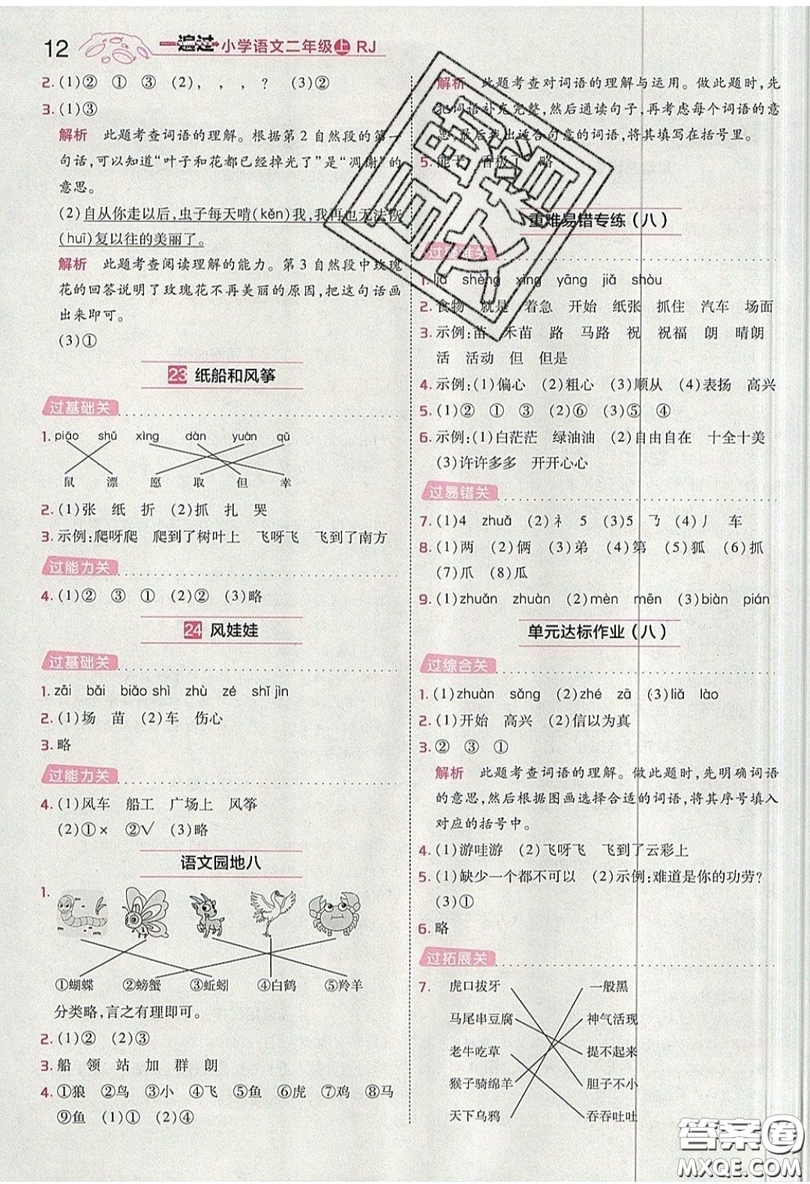 12 一遍过 小学语文二年级上 RJ
2. (1)② ① ③ (2), , , ? (3)②
3. (1)③
解析 此题考查词语的理解。根据第2自然段的第一
句话,可以知道“叶子和花都已经掉光了”是“凋谢”的
意思。
(2)自从你走以后,虫子每天啃(kěn)我,我再也无法恢
(huī)复以往的美丽了。
解析 此题考查阅读理解的能力。第3自然段中玫瑰
花的回答说明了玫瑰花不再美丽的原因,把这句话画
出来即可。
(3)①
23 纸船和风筝
过基础关
1. piāo shǔ xìng dàn yuàn qǔ
鼠 漂 愿 取 但 幸
2. (1)张 纸 折 (2)抓 扎 哭
3. 示例:爬呀爬 爬到了树叶上 飞呀飞 飞到了南方
过能力关
4. (1)② ③ ① (2)② (3)略
24 风娃娃
过基础关
1. zāi bǎi biǎo shì zhù zé shǐ jìn
2. (1)场 苗 (2)车 伤心
3. 略
过能力关
4. (1)风车 船工 广场上 风筝
(2)①× ②√ (3)略
语文园地八
1.
①蝴蝶 ②螃蟹 ③蚯蚓 ④白鹤 ⑤羚羊
分类略,言之有理即可。
2. (1)② (2)③
3. 船 领 站 加 群 朗
4. ①狼 ②鸟 ③小 ④飞 ⑤鱼 ⑥虎 ⑦鸡 ⑧马
⑨鱼 (1)① (2)④
解析 此题考查对词语的理解与运用。做此题时,先
把词语补充完整,然后通读句子,再考虑每个词语的意
思,最后找出适合句意的词语,将其填写在括号里。
5. 略
重难易错专练(八)
过基础关
1. shèng xíng yāng jiǎ shòu
2. 食物 就是 着急 开始 纸张 抓住 汽车 场面
3. 示例:苗 禾苗 路 马路 祝 祝福 朗 晴朗
活 活动 但 但是
4. 示例:(1)偏心 (2)粗心 (3)顺从 (4)表扬 高兴
5. (1)② ① ③ (2)⑥ (3)⑤ ④
6. 示例:(1)白茫茫 绿油油 (2)自由自在 十全十美
(3)许许多多 开开心心
过易错关
7. (1)4 zhuǎ (2)礻 5 (3)5 ㇋ (4)丿 车
8. (1)两 (2)俩 (3)弟 (4)第 (5)狐 (6)孤
(7)爪 (8)瓜
9. (1)zhuǎn zhuàn (2)mèn mēn (3)biàn pián
单元达标作业(八)
过综合关
1. (1)zhuàn sǎng (2)zhé zā (3)liǎ lào
2. (1)开始 高兴 (2)信以为真
3. ② ③ ①
解析 此题考查词语的理解。做此题时,先明确词语
的意思,然后根据图画选择合适的词语,将其序号填入
对应的括号中。
4. (1)游哇游 (2)飞呀飞 飞到了云彩上
5. (1)缺少一个都不可以 (2)示例:难道是你的功劳?
(3)①
6. 略
过拓展关
7. 虎口拔牙 一般黑
马尾串豆腐 神气活现
老牛吃草 提不起来
猴子骑绵羊 胆子不小
天下乌鸦 吞吞吐吐
答案卷
MXQE.COM